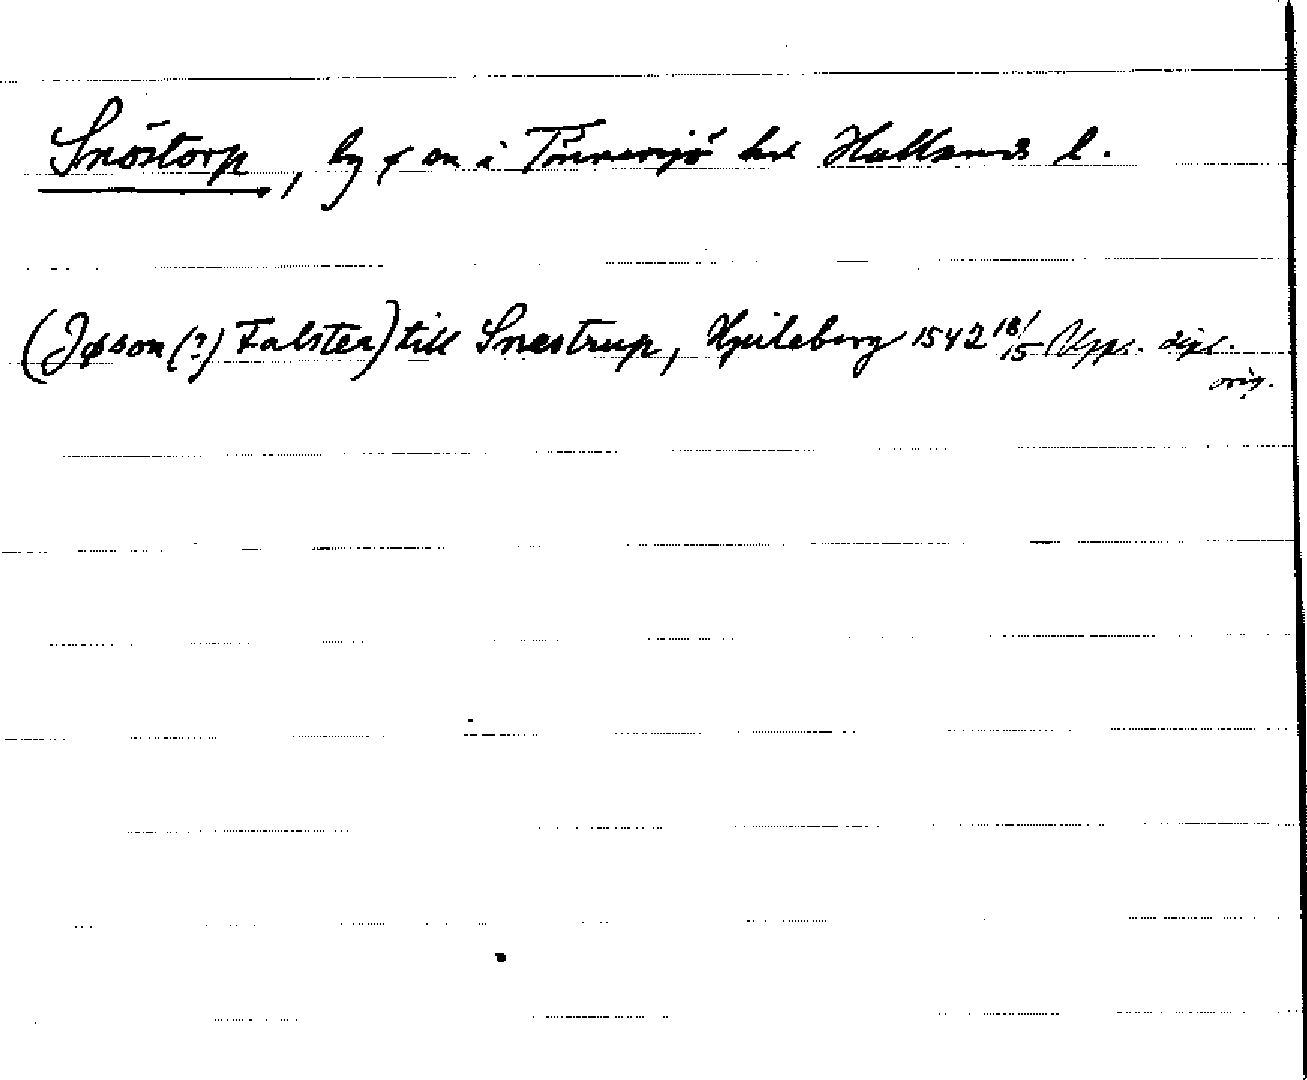 Snöstorp, by o sn i Tönnersjö hd Hallands l.
(Jøson(?) Falster) till Snestrup, Hjuleberg 1542 18/15 Upps. dipl.
orig.